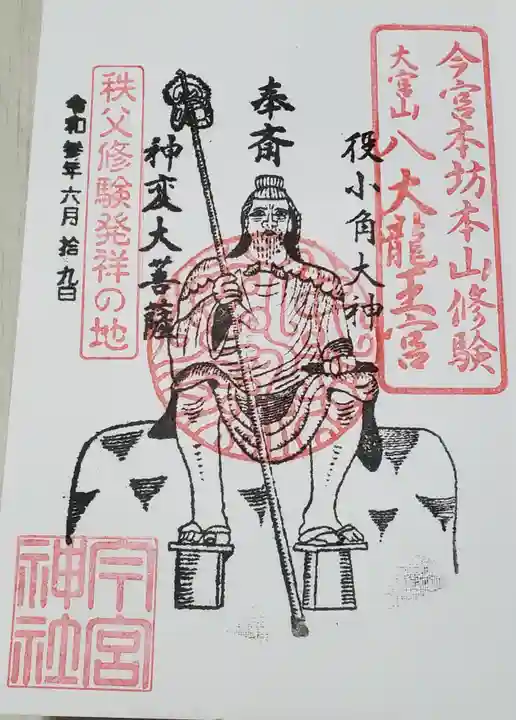 今宮本坊本山修験
大宮山
八大龍王宮
奉斎
役小角大神
神変大菩薩
秩父修験発祥の地
令和参年六月拾九日
今宮
神社